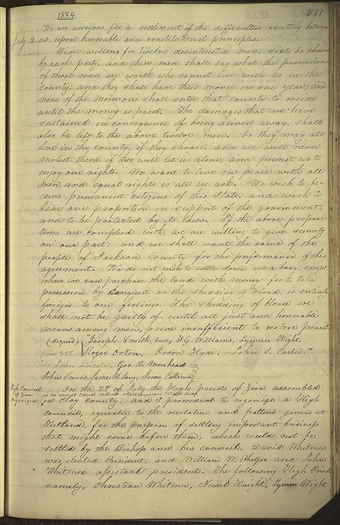 1834
511
We are anxious for a settlement of the difficulties existing between
us, upon honorable and constitutional principles.
We are willing for twelve disinterested men, six to be chosen
by each party, and these men shall say what the possessions
of those men are worth who cannot live with us in the
county; and they shall have their money in one year; and
none of the Mormons shall enter that county to reside
until the money is paid. The damages that we have
sustained in consequence of being driven away, shall
also be left to the above twelve men. Or they may all
live in the county, if they choose, and we will never
molest them if they will let us alone and permit us to
enjoy our rights. We want to live in peace with all
men, and equal rights is all we ask. We wish to be-
come permanent citizens of this State, and wish to
bear our proportion in support of the government,
and to be protected by its laws. If the above propos-
tions are complied with, we are willing to give security
on our part; and we shall want the same of the
people of Jackson county for the performance of this
agreement. We do not wish to settle down in a body, except
where we can purchase the lands with money: for to take
possession by conquest or the shedding of blood, is entirely
foreign to our feelings. The shedding of blood we
shall not be guilty of, until all just and honorable
means among men, prove insufficient to restore peace.
(signed) "Joseph Smith, Jun, F.G. Williams, Lyman Wight,
Roger Orton, Orson Hyde, John S. Carter."
To John Lincoln Geo. R. Morehead
John Sconce James H. Long, James Collins
High Council of Zion organized
On the 3d of July the High priests of Zion assembled
in Clay County, and I proceeded to organize a High
council, agreeable to the revelation and pattern given at
Kirtland, for the purpose of settling important business
that might come before them, which could not be
settled by the Bishop and his council. David Whitmer
was elected President, and William W. Phelps and John
Whitmer assistant presidents. The following High Priests
namely: Christian Whitmer, Newel Knight, Lyman Wight